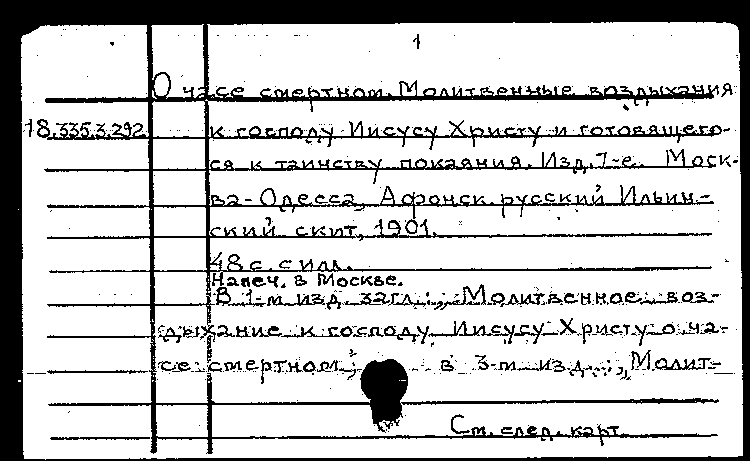 1
О часе смертном. Молитвенные воздыхания
18.335.3.292 к господу Иисусу Христу и готовящего-
ся к таинству покаяния. Изд. 7-е. Моск-
ва-Одесса, Афонск. русский Ильин-
ский скит, 1901.
48 с. с илл.
Напеч. в Москве.
В 1-м изд. загл.: „Молитвенное воз-
дыхание к господу Иисусу Христу о ча-
се смертном"; в 3-м изд.: „Молит-
См. след. карт.